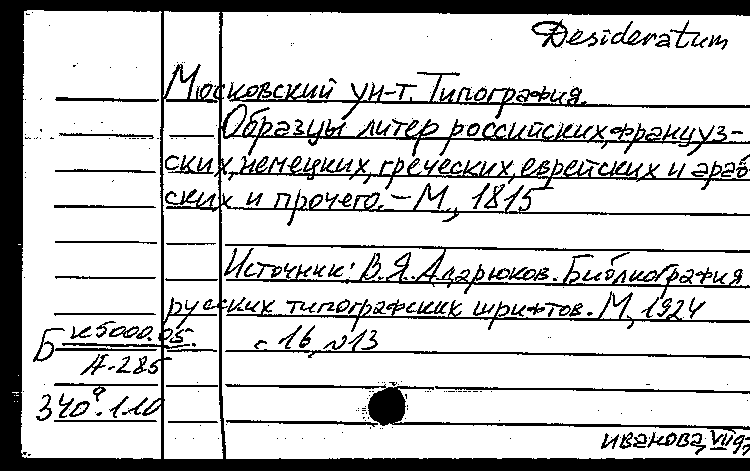 Desideratum
Московский ун-т. Типография.
Образцы литер российских, француз-
ских, немецких, греческих, еврейских и араб-
ских и прочего. – М., 1815
Источник: В.Я. Адарюков. Библиография
русских типографских шрифтов. М., 1924
с. 16, №13
Б к5000.05.
А-285
340°.110
иванова, VII 97